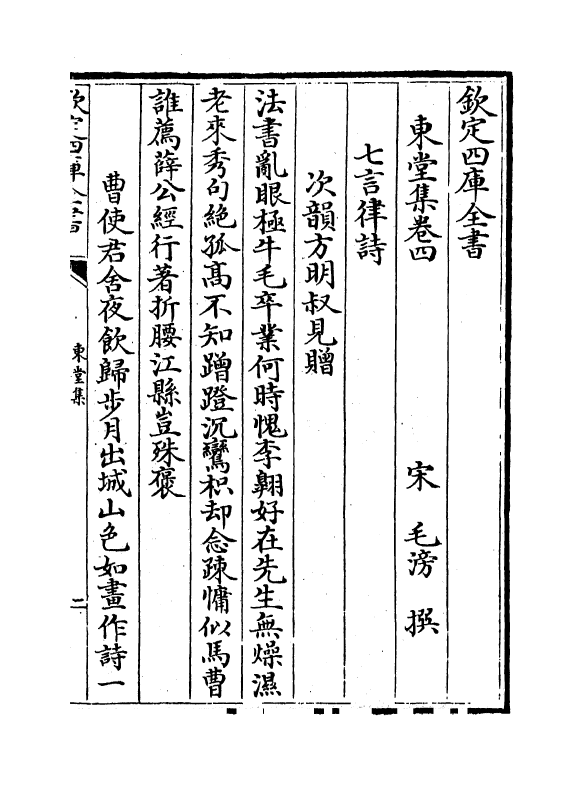 欽定四庫全書
東堂集卷四　　　宋　毛滂　撰
七言律詩
次韻方明叔見贈
法書亂眼極牛毛卒業何時愧李翺好在先生無燥濕
老來秀句絶孤髙不知蹭蹬沉鸞枳却念踈慵似馬曹
誰薦薛公經行著折腰江縣豈殊褒
曹使君舍夜飲歸步月出城山色如畫作詩一
欽定四庫全書
東堂集
二